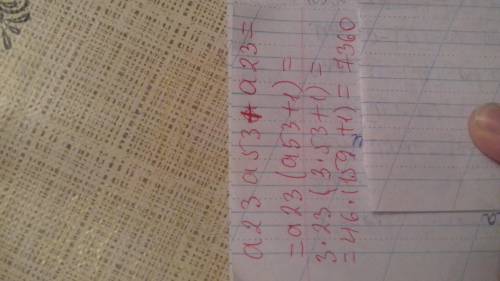 a23 a53 + a23 =
= a23 (a53+1) =
3·23 (3·53+1) =
= 46·(159+1) = 7360